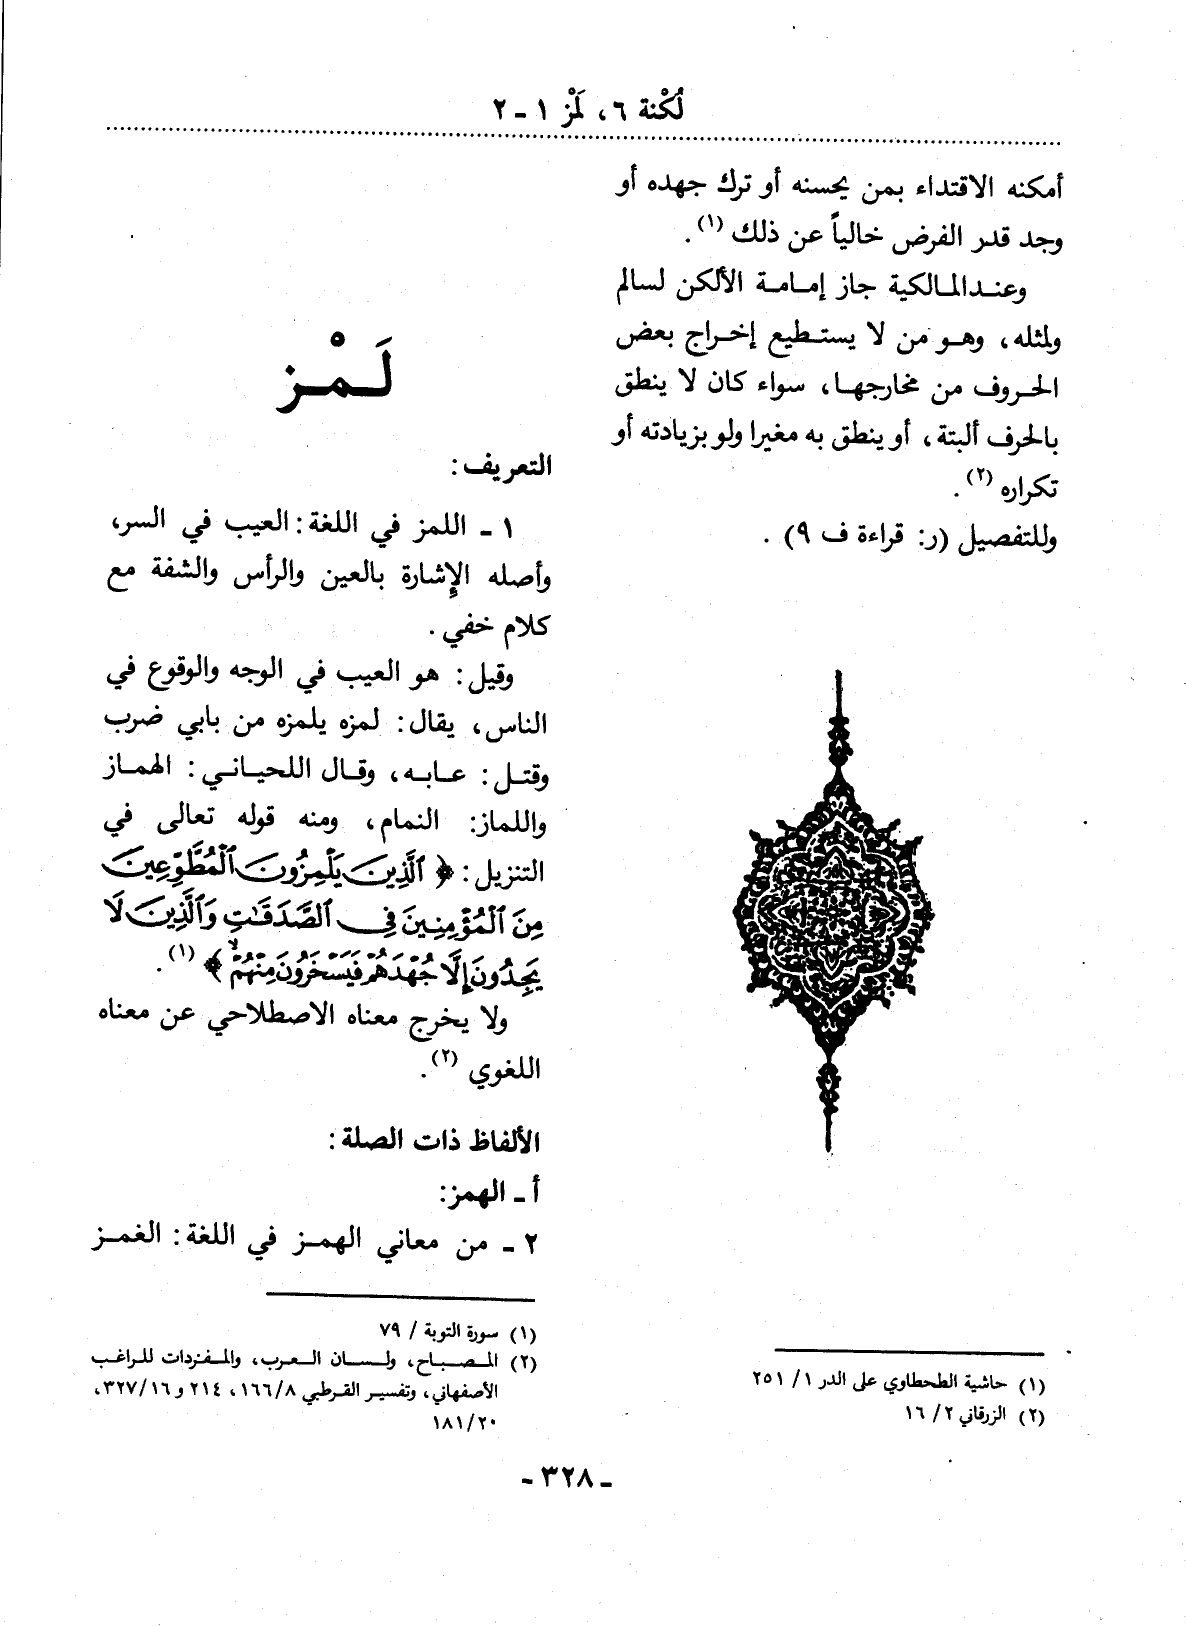 لُكْنة ٦، لَمْز ١ ـ ٢
أمكنه الاقتداء بمن يحسنه أو ترك جهده أو
وجد قدر الفرض خالياً عن ذلك (١) .
وعند المالكية جاز إمامة الألكن لسالم
ولمثله، وهو من لا يستطيع إخراج بعض
الحروف من مخارجها، سواء كان لا ينطق
بالحرف ألبتة، أو ينطق به مغيرا ولو بزيادته أو
تكراره (٢) .
وللتفصيل (ر: قراءة ف ٩) .
(١) حاشية الطحطاوي على الدر ١/ ٢٥١
(٢) الزرقاني ٢/ ١٦
لَمْز
التعريف:
١ ـ اللمز في اللغة: العيب في السر،
وأصله الإشارة بالعين والرأس والشفة مع
كلام خفي .
وقيل: هو العيب في الوجه والوقوع في
الناس، يقال: لمزه يلمزه من بابي ضرب
وقتل: عابه، وقال اللحياني: الهماز
واللماز: النمام، ومنه قوله تعالى في
التنزيل: ﴿ ٱلَّذِينَ يَلْمِزُونَ ٱلْمُطَّوِّعِينَ
مِنَ ٱلْمُؤْمِنِينَ فِي ٱلصَّدَقَٰتِ وَٱلَّذِينَ لَا
يَجِدُونَ إِلَّا جُهْدَهُمْ فَيَسْخَرُونَ مِنْهُمْ ۙ ﴾ (١) .
ولا يخرج معناه الاصطلاحي عن معناه
اللغوي (٢) .
الألفاظ ذات الصلة:
أ ـ الهمز:
٢ ـ من معاني الهمز في اللغة: الغمز
(١) سورة التوبة / ٧٩
(٢) المصباح، ولسان العرب، والمفردات للراغب
الأصفهاني، وتفسير القرطبي ١٦٦/٨، ٢١٤ و ٣٢٧/١٦،
١٨١/٢٠
ـ ٣٢٨ ـ